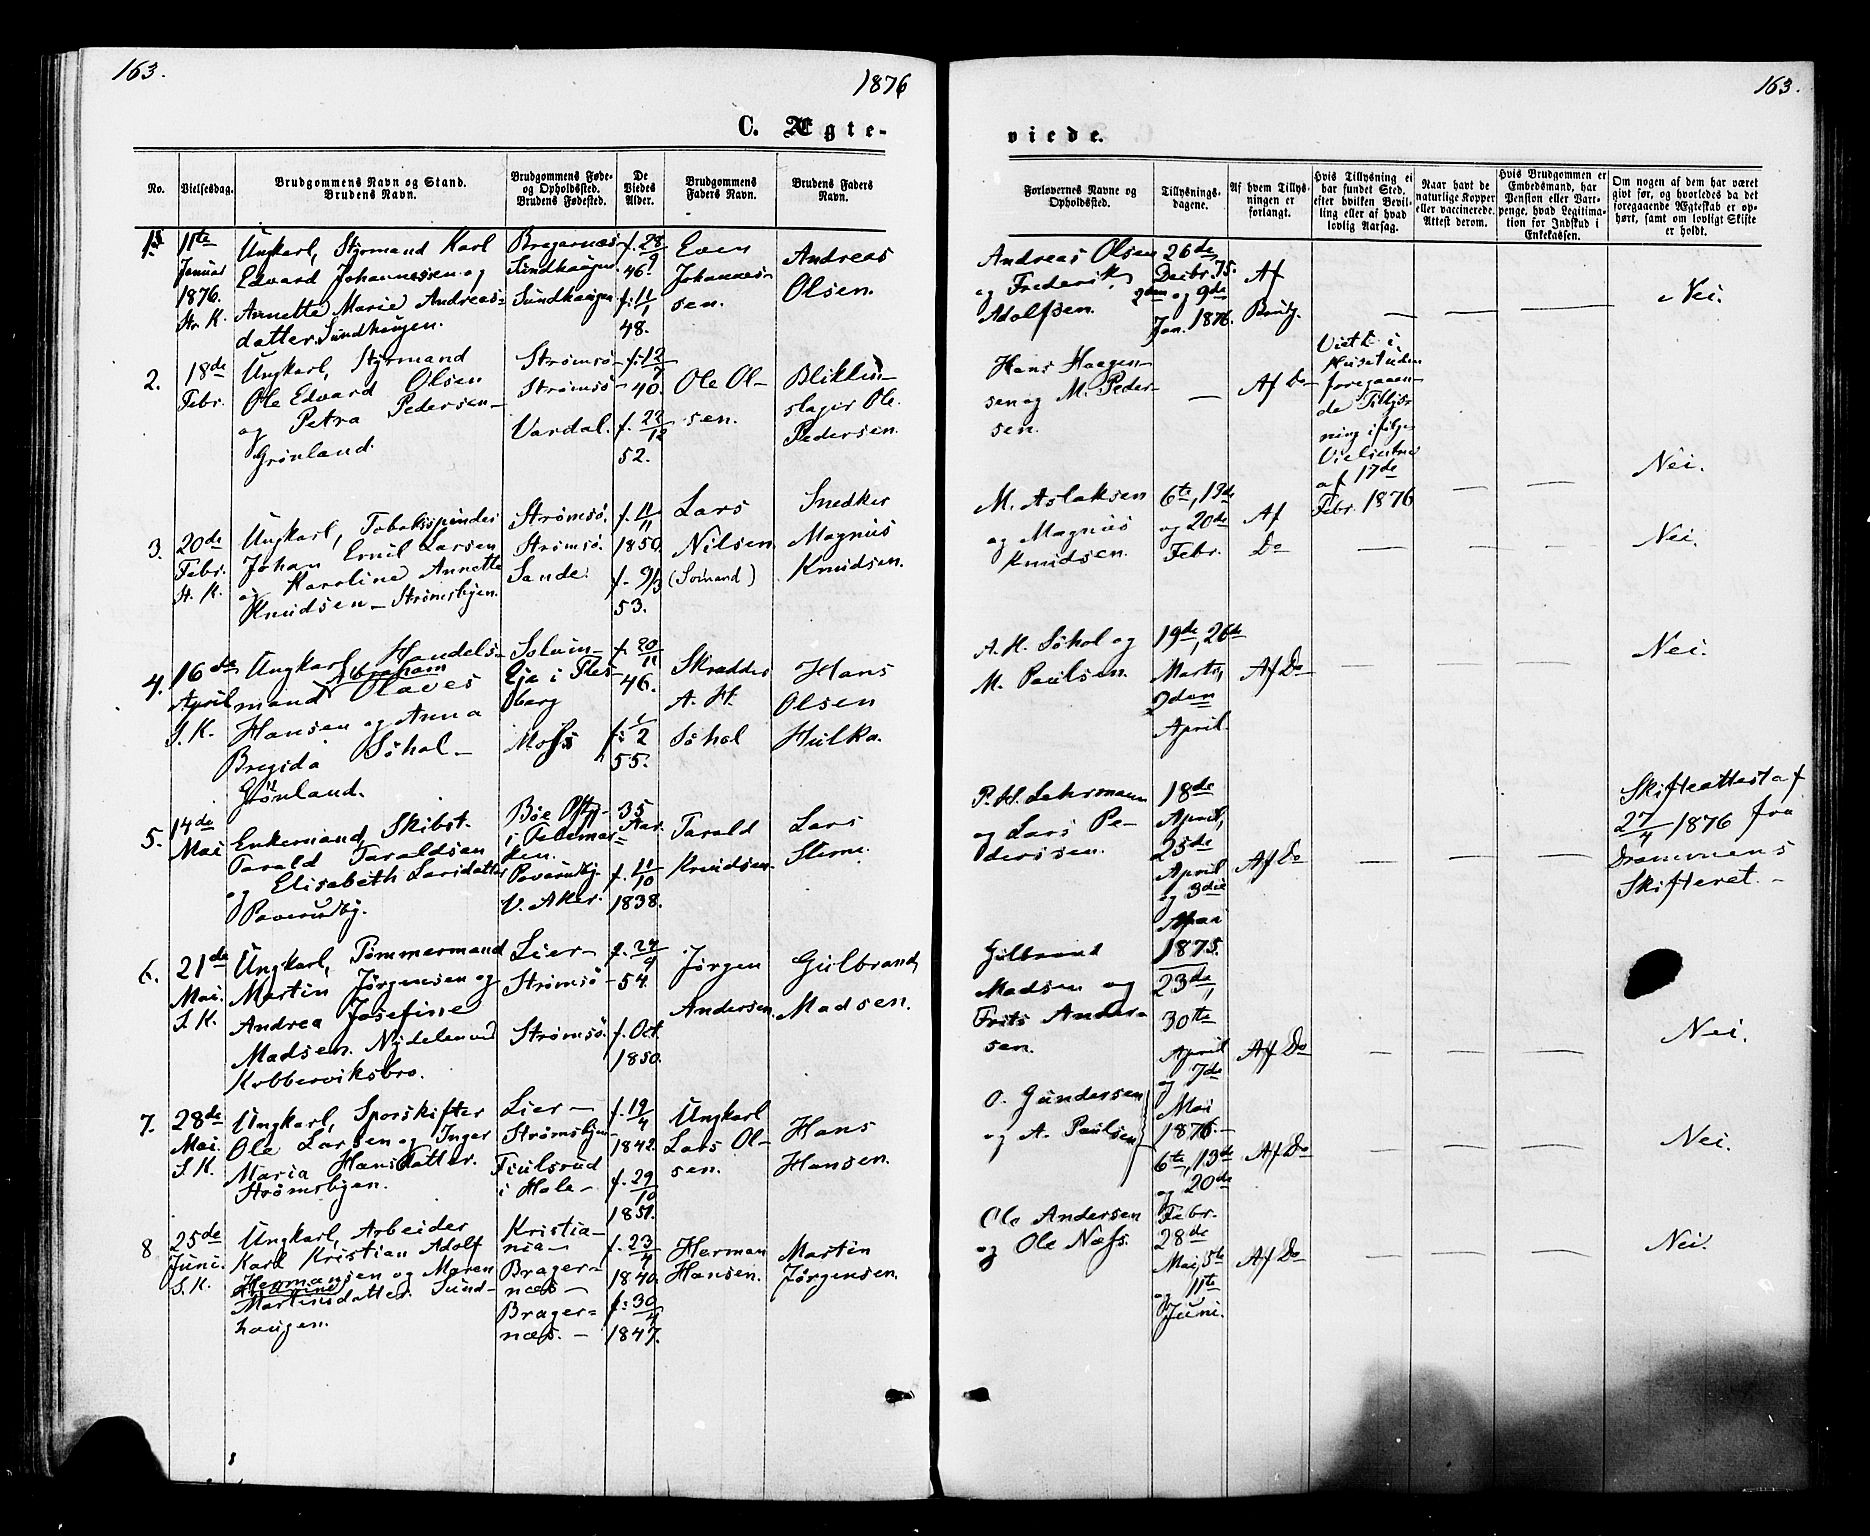 163.
1876
C. Ægte-
No.
Vielsesdag.
Brudgommens Navn og Stand.
Brudens Navn.
Brudgommens Føde-
og Opholdssted.
Brudens Fødested.
De
Viedes
Alder.
Brudgommens
Faders Navn.
Brudens Faders
Navn.
1.
11te
Januar
1876.
Str. K.
Ungkarl, Styrmand Karl
Edvard Johannessen og
Annette Marie Andreas-
datter. Sundhaugen.
Bragernæs
Sundhaugen
Sundhaugen
f. 28/9
46.
f. 11/1
48.
Even
Johannes-
sen.
Andreas
Olsen.
2.
18de
Febr.
Ungkarl, Styrmand
Ole Edvard Olsen
og Petra Pedersen -
Grönland.
Strømsö -
Strømsö -
Vardal.
40.
f. 22/12
52.
Ole Ol-
sen.
slager Ole
Pedersen.
3.
20de
Febr.
St. K.
Ungkarl, Tobaksspinder
Johan Emil Larsen
og Karoline Annette
Knudsen - Strømsbyen.
Strømsö.
Strømsö.
Sande.
f. 11/11
1850.
f. 9/3
53.
Lars
Nilsen
(Sømand)
Snedker
Magnus
Knudsen.
4.
16de
April
S. K.
Ungkarl, Handels-
Abraham
mand Olaves
Hansen og Anna
Bregida Söhol -
Grönland.
Solum -
Eje i Fles-
berg
Moss
f. 20/11
46.
55.
Skrædder
A. H.
Söhol
Hans
Olsen
Hulka.
5.
14de
Mai
Enkemand, Skibst.
Tarald Taraldsen
og Elisabeth Larsdatter
Paverudby.
Bøe
i Telemar-
ken.
Paverudby.
V. Aker.
35
Aar.
f. 11/10
1838.
Tarald
Knudsen
Lars
6.
21de
Mai.
S. K.
Ungkarl, Tømmermand
Martin Jørgensen og
Andrea Josefine
Madsen. Nydelen ved
Kobberviksbro.
Lier -
Strømsö -
Strømsö.
54.
f. Oct.
1850.
Jørgen
Andersen.
Gulbrand
Madsen.
7.
28de
Mai.
S. K.
Ungkarl, Sporskifter
Ole Larsen og Inger
Maria Hansdatter.
Strømsbyen.
Lier -
Strømsbyen
i Hole -
f. 19/4
1842.
f. 29/10
1851.
Ungkarl
Lars Ol-
sen.
Hans
Hansen.
8
25de
Juni.
S. K.
Ungkarl, Arbeider
Karl Kristian Adolf
Hermansen og Maren
Martinsdatter. Sund-
haugen.
Kristia-
nia -
Brager-
næs -
Brager-
næs. -
f. 23/4
1840.
f. 30/4
1847.
Herman
Hansen.
Martin
Jørgensen.
163.
viede.
Forlovernes Navne og
Opholdssted.
Tillysnings-
dagene.
Af hvem Tillys-
ningen er
forlangt.
Hvis Tillysning ei
har fundet Sted,
efter hvilken Bevil-
ling eller af hvad
lovlig Aarsag.
Naar havt de
naturlige Kopper
eller vaccinerede.
Attest derom.
Hvis Brudgommen er
Embedsmand, har
Pension eller Vart-
penge, hvad Legitima-
tion for Indskud i
Enkekassen.
Om nogen af dem har været
givt før, og hvorledes da det
foregaaende Ægteskab er op-
hørt, samt om lovligt Skifte
er holdt.
Andreas Olsen
og Frederik
Adolfsen.
26de
Decbr. 75.
2den og 9de
Jan. 1876.
Af
Brudg.
Nei.
Hans Haagen-
sen og M. Peder-
sen.
Af Do
Viet i
Huset uden
foregaaen-
de Tillys-
ning ifølge
af 17de
Febr. 1876
Nei.
M. Aslaksen
og Magnus
Knudsen.
6te, 13de
og 20de
Febr.
Af
Do
Nei.
A. H. Söhol og
M. Paulsen.
19de, 26de
Marts,
2den
April.
Af Do
Nei.
P. H. Lehrmann
og Lars Pe-
derssen.
18de
April,
25de
April
og 3die
1875.
Af Do
Skifteattest af
27/4 1876 fra
Drammens
Skifteret. -
Gulbrand
Madsen og
Frits Ander-
sen.
23de,
30te
April
og 7de
Mai
1876. -
Af Do
Nei.
O. Gundersen
og A. Paulsen
6te, 13de
og 20de
Febr.
Af Do
Nei.
Ole Andersen
og Ole Næss.
28de
Mai, 5te
og 11te
Juni.
Af Do
Nei.